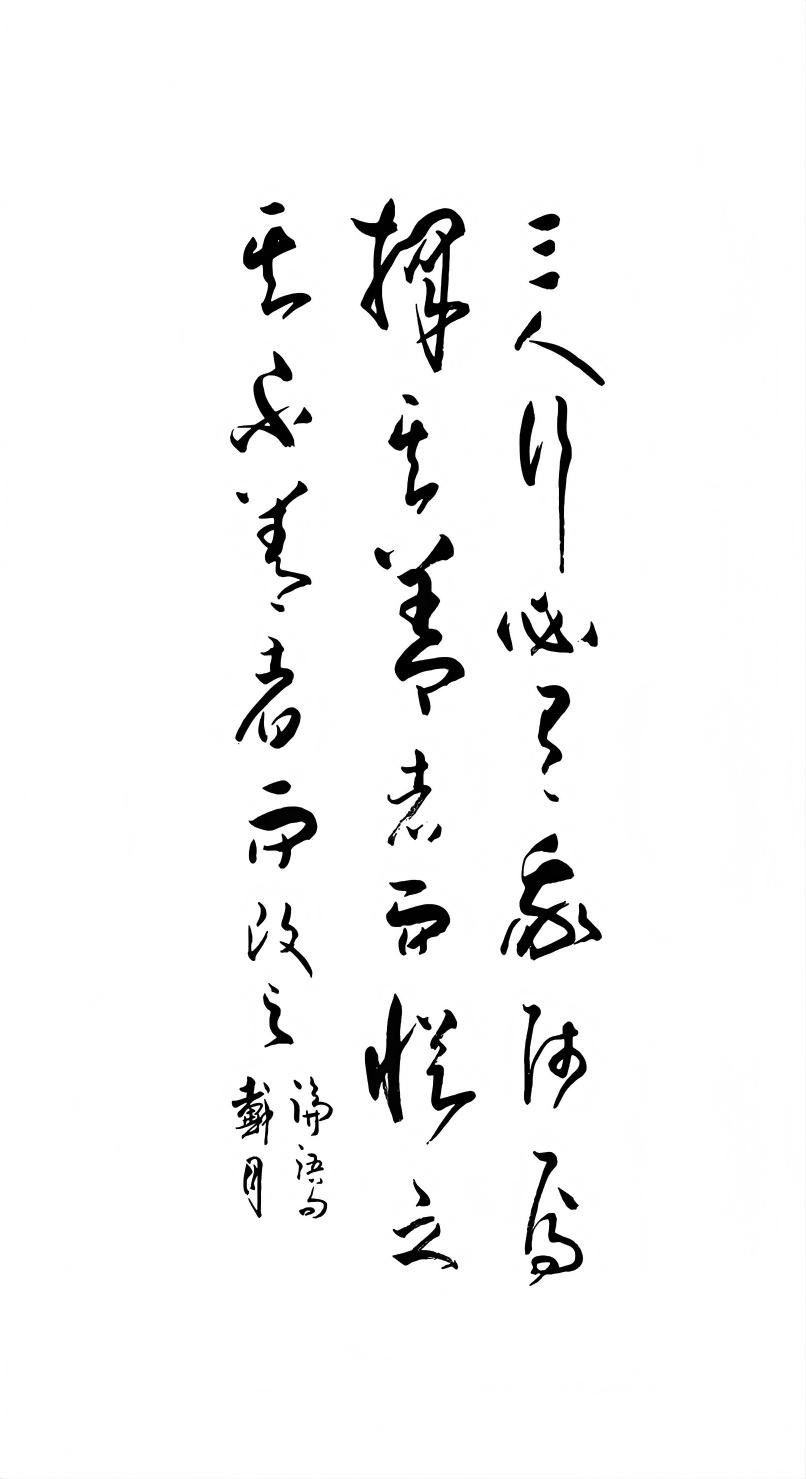 三人行必有我師焉
擇其善者而從之
其不善者而改之
論語句
戴月